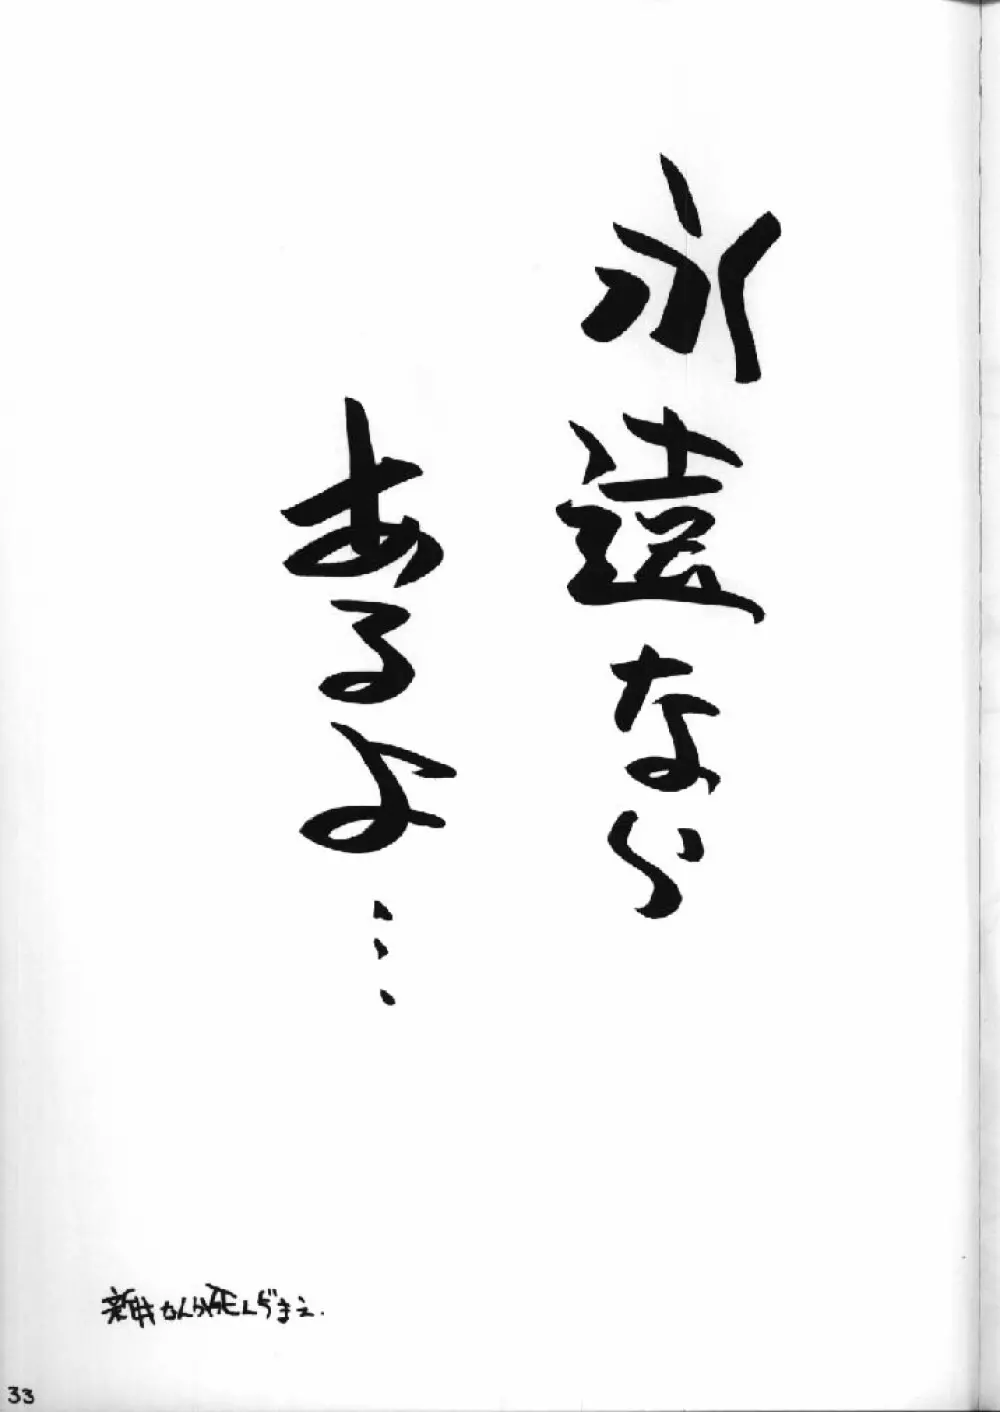 永遠なら
あるよ…
新井なんか死んじまえ.
33